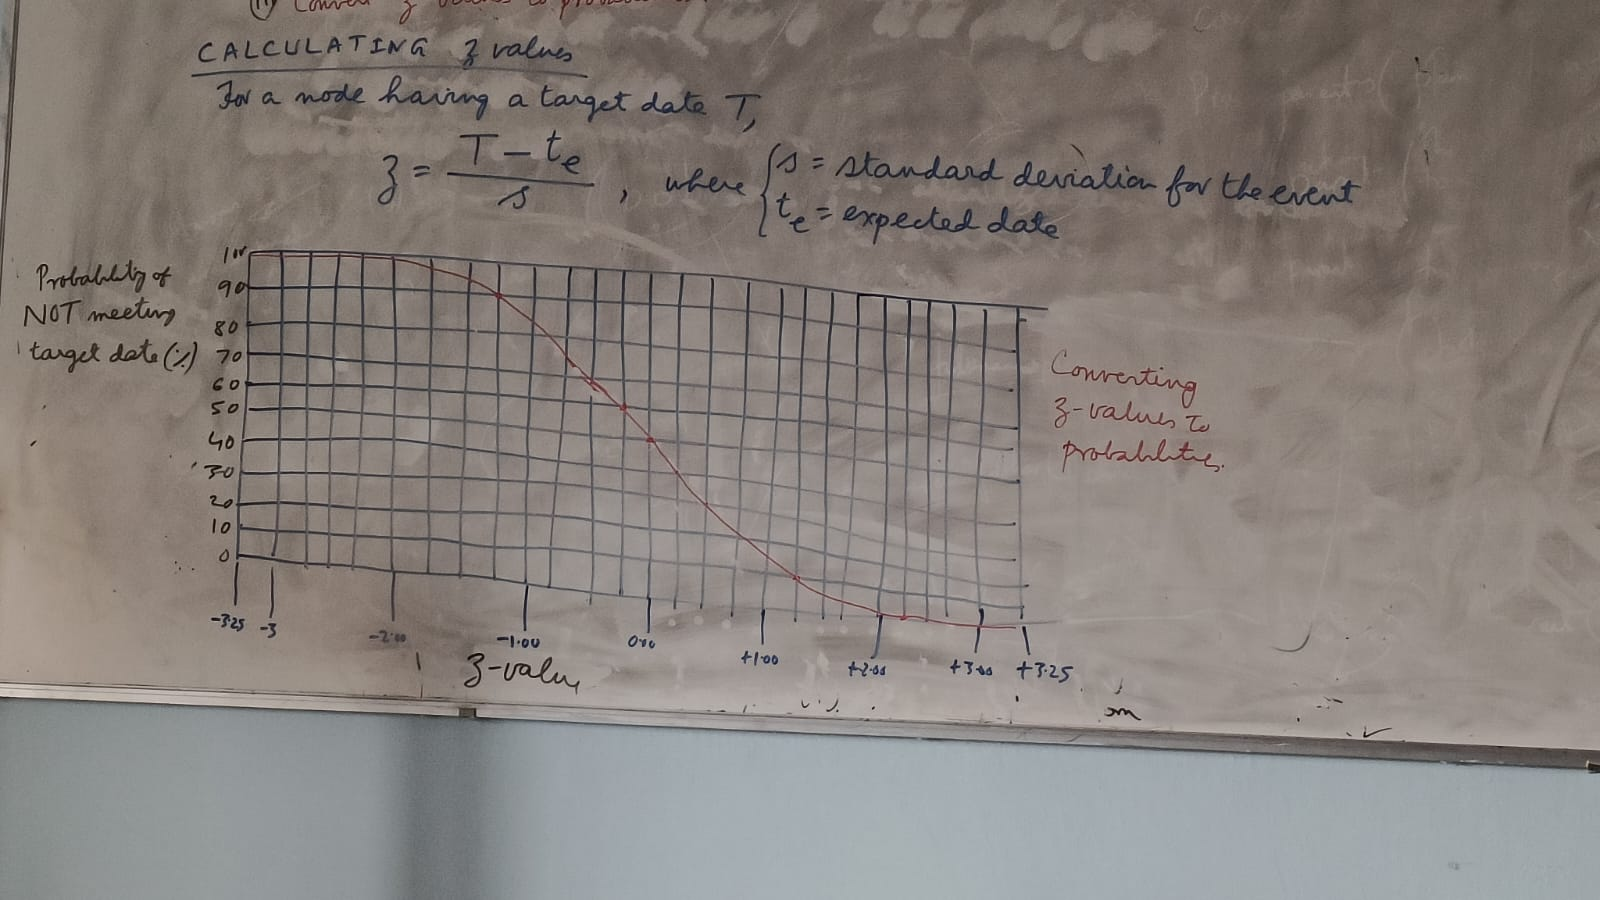 (ii) Convert z values to
CALCULATING z values
For a node having a target date T,
z = (T - te) / s , where { s = standard deviation for the event
te = expected date
Probability of
NOT meeting
target date (%)
100
90
80
70
60
50
40
30
20
10
0
-3.25 -3 -2.00 -1.00 0.00 +1.00 +2.00 +3.00 +3.25
z-value
Converting
z-values to
probabilities.